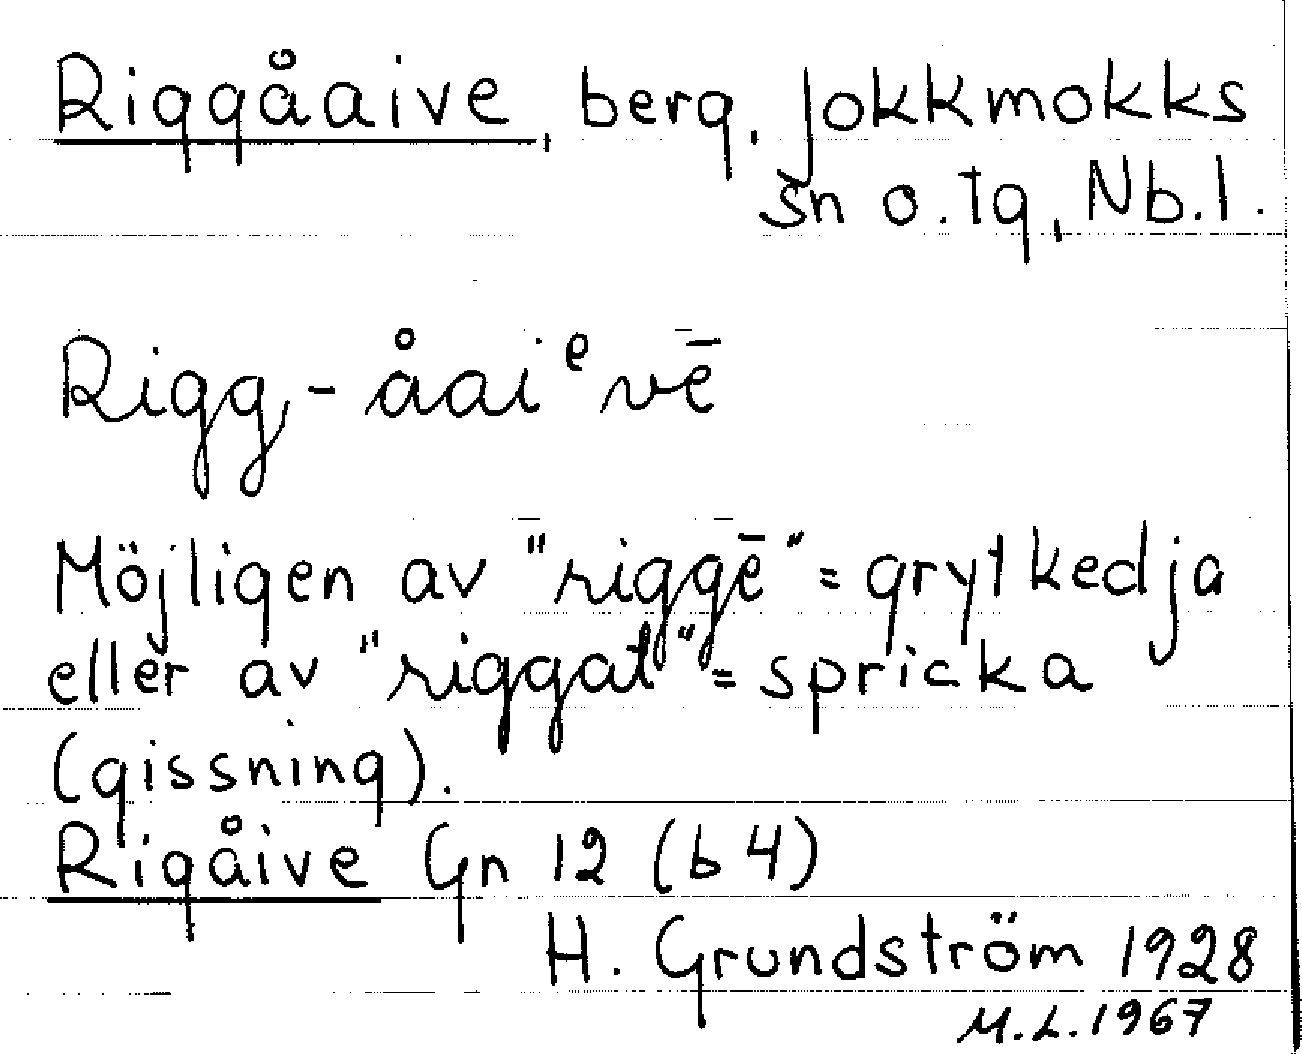 Riggåaive, berg, Jokkmokks
sn o. tg, Nb. l.
Rigg-åaiᵉvē
Möjligen av "riggē" = grytkedja
eller av "riggat" = spricka
(gissning).
Rigåive Gn 12 (b 4)
H. Grundström 1928
M.L. 1967